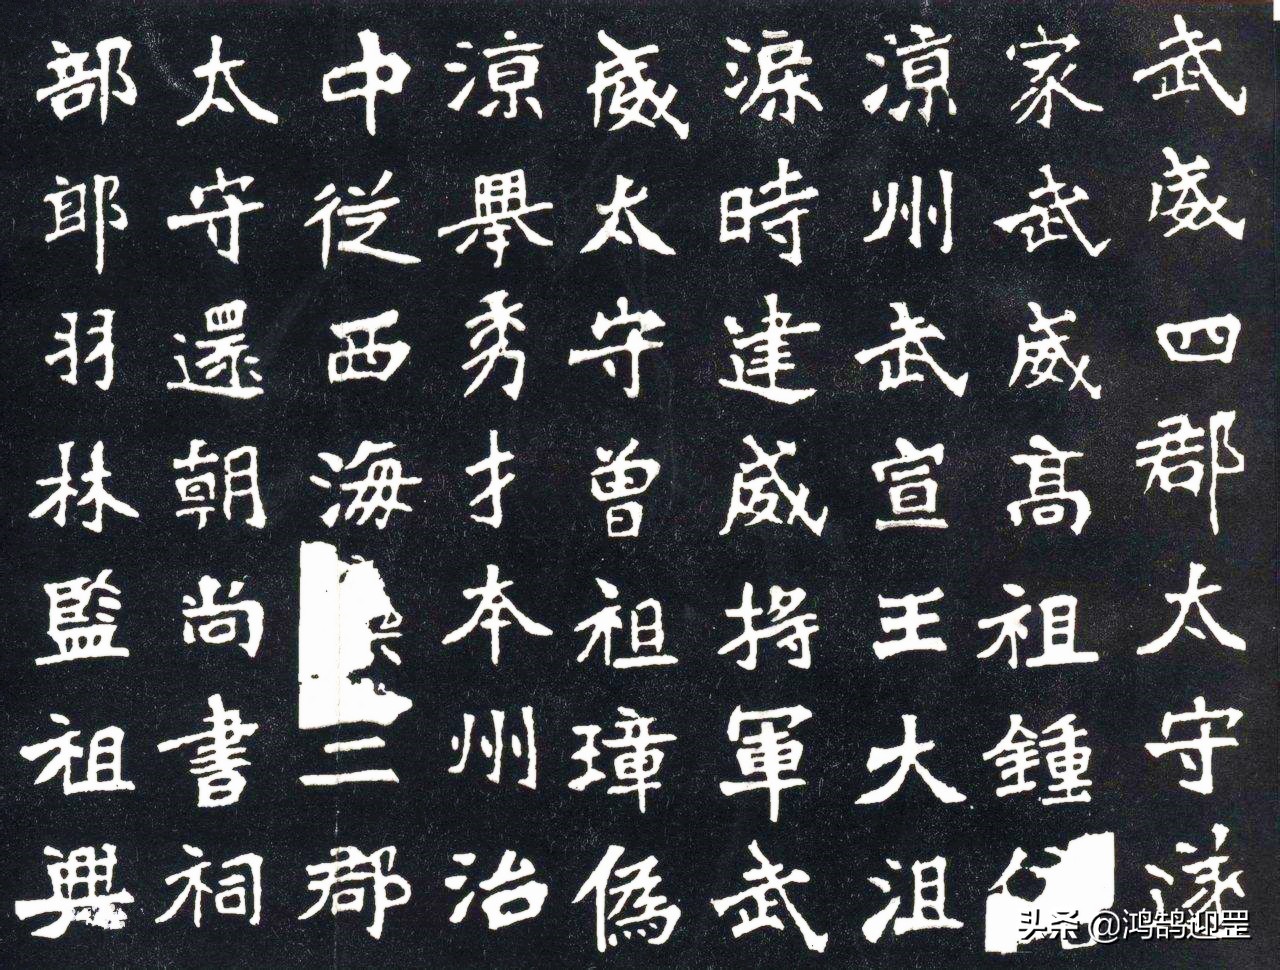 武威四郡太守遂
家武威高祖鍾
涼州武宣王大沮
渠時建威將軍武
威太守曾祖璋偽
涼舉秀才本州治
中從西海二郡
太守還朝尚書祠
部郎羽林監祖興
头条 @鸿鹄迎罡